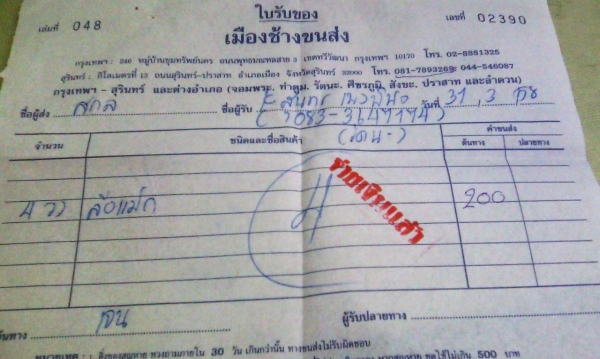 ใบรับของ
เล่มที่ 048
เลขที่ 02390
เมืองช้างขนส่ง
กรุงเทพฯ : 246 หมู่บ้านชุมทรัพย์นคร ถนนพุทธมณฑลสาย 3 เขตทวีวัฒนา กรุงเทพฯ 10170 โทร. 02-8881325
สุรินทร์ : กิโลเมตรที่ 13 ถนนสุรินทร์-ปราสาท อำเภอเมือง จังหวัดสุรินทร์ 32000 โทร. 081-7893269; 044-546087
กรุงเทพฯ - สุรินทร์ และต่างอำเภอ (จอมพระ, ท่าตูม, รัตนะ, ศีขรภูมิ, สังขะ, ปราสาท และลำดวน)
ชื่อผู้ส่ง สกล ชื่อผู้รับ วันที่ 31, 3, 58
จำนวน ชนิดและชื่อสินค้า ค่าขนส่ง
ต้นทาง ปลายทาง
4 วง ล้อแม็ก 200
จ่ายเงินแล้ว
ผู้รับปลายทาง
หมายเหตุ : สิ่งของสูญหาย ทวงถามภายใน 30 วัน เกินกว่านั้น ทางขนส่งไม่รับผิดชอบ
ชดใช้ไม่เกิน 500 บาท